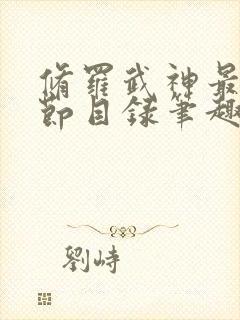 脩羅武神最
節目錄筆趣
劉峙